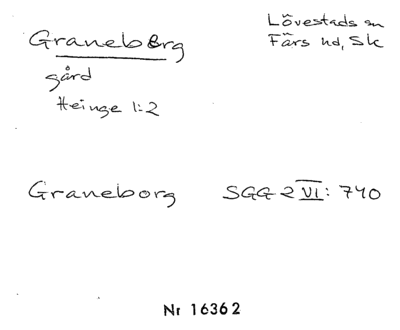 Graneborg
Lövestads sn
Färs hd, Sk
gård
Heinge 1:2
Graneborg SGG 2 VI: 740
Nr 16362